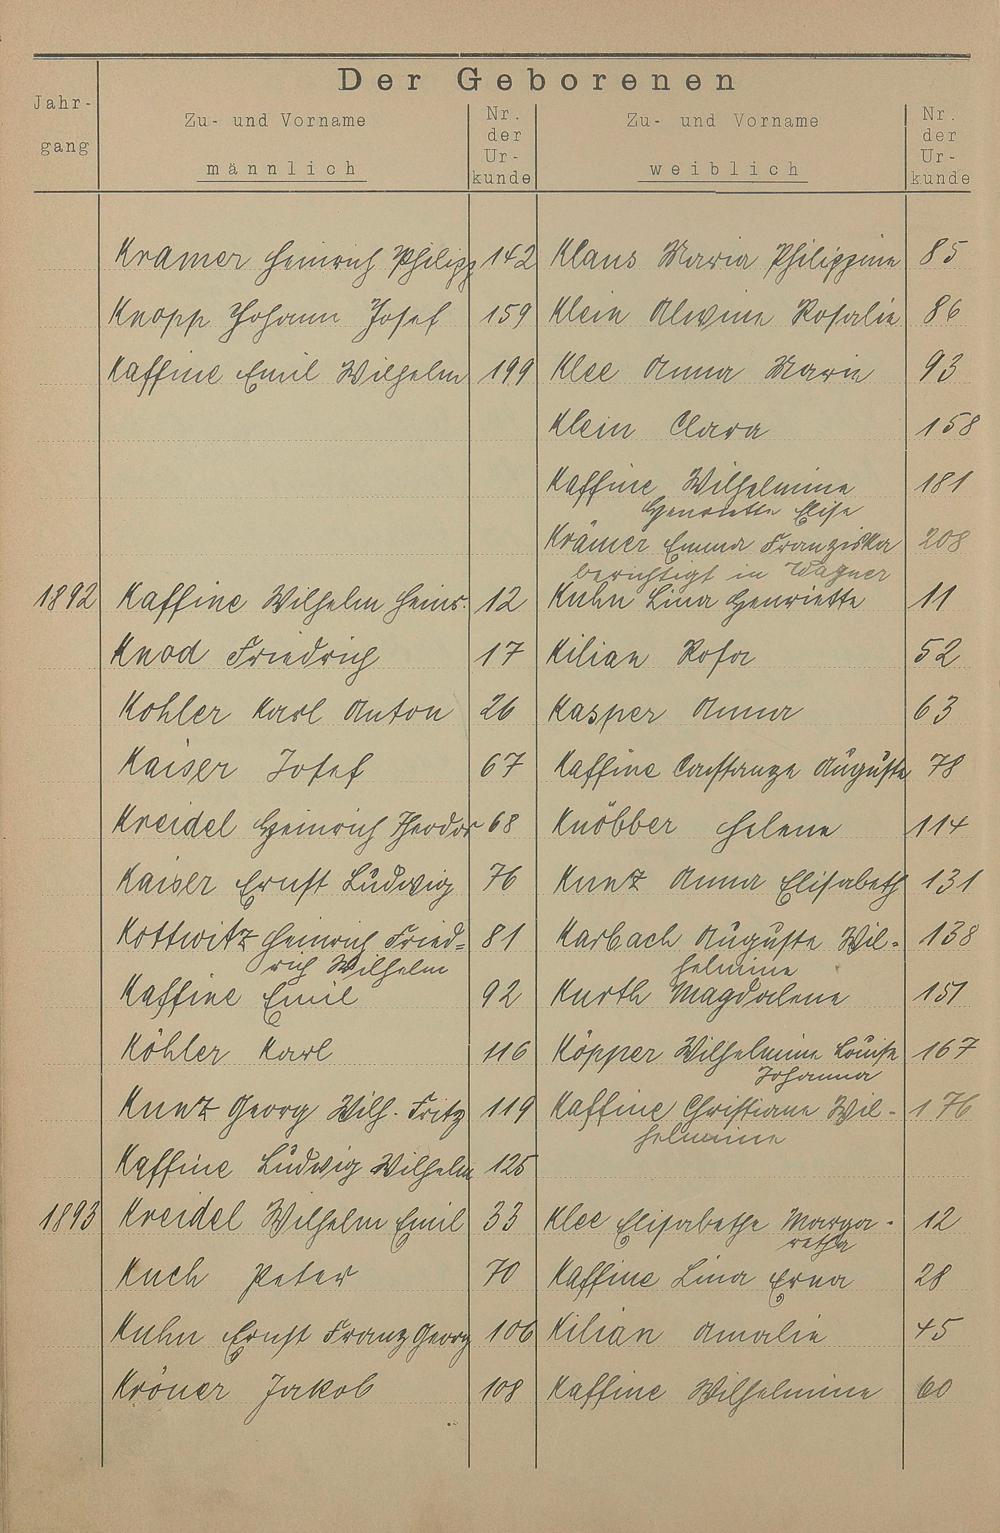 Der Geborenen
Jahr-
gang
Zu- und Vorname
männlich
Nr.
der
Ur-
kunde
Zu- und Vorname
weiblich
Nr.
der
Ur-
kunde
Kramer Heinrich Philipp 142 Klaus Maria Philippine 85
Knopp Johann Josef 159 Klein Alwine Rosalie 86
Kaffine Emil Wilhelm 199 Klee Anna Marie 93
Klein Clara 158
Kaffine Wilhelmine 181
Henriette Elise
Krämer Emma Franziska 208
berichtigt in Wagner
1892 Kaffine Wilhelm Heinr. 12 Kuhn Lina Henriette 11
Knod Friedrich 17 Kilian Rosa 52
Kohler Karl Anton 26 Kasper Anna 63
Kaiser Josef 67 Kaffine Constanze Auguste 78
Kreidel Heinrich Theodor 68 Knöbber Helene 114
Kaiser Ernst Ludwig 76 Kunz Anna Elisabeth 131
Kottwitz Heinrich Fried= 81 Karbach Auguste Wil- 138
rich Wilhelm helmine
Kaffine Emil 92 Kurth Magdalene 151
Köhler Karl 116 Köpper Wilhelmine Louise 167
Johanna
Kunz Georg Wilh. Fritz 119 Kaffine Christiane Wil- 176
helmine
Kaffine Ludwig Wilhelm 125
1893 Kreidel Wilhelm Emil 33 Klee Elisabethe Marga- 12
retha
Kuch Peter 70 Kaffine Lina Erna 28
Kuhn Ernst Franz Georg 106 Kilian Amalie 45
Kröner Jakob 108 Kaffine Wilhelmine 60